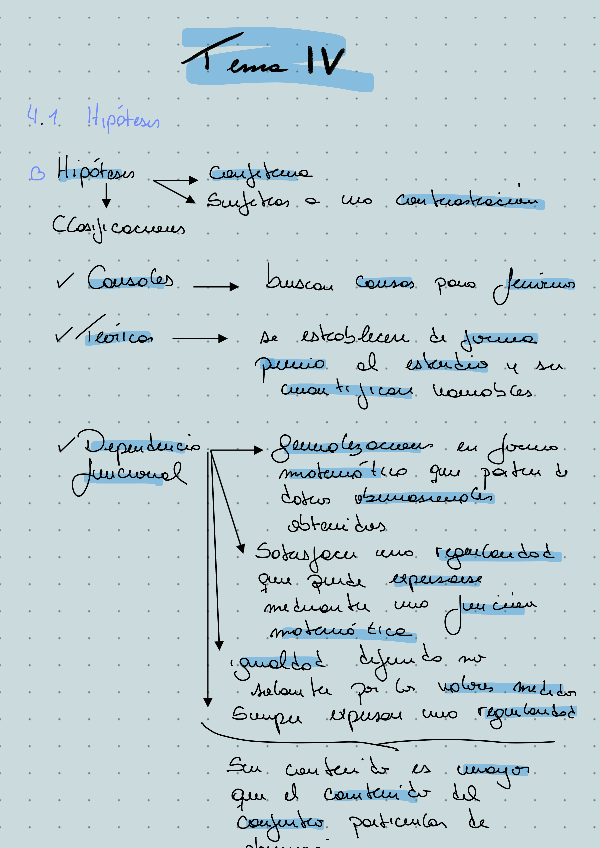 Tema IV
4.1. Hipótesis
Hipótesis → Conjetura
Sujetas a una contrastación
Clasificaciones
✓ Causales → buscan causas para fenómeno
✓ Teóricas → se establecen de forma
previa al estudio y su
cuantifican variables
✓ Dependencia funcional → generalizaciones en forma
matemática que parten de
datos observacionales
obtenidos
Satisfacen una regularidad
que puede expresarse
mediante una función
matemática
igualdad definida no
solamente por los valores medidos
Siempre expresan una regularidad
Su contenido es mayor
que el contenido del
conjunto particular de